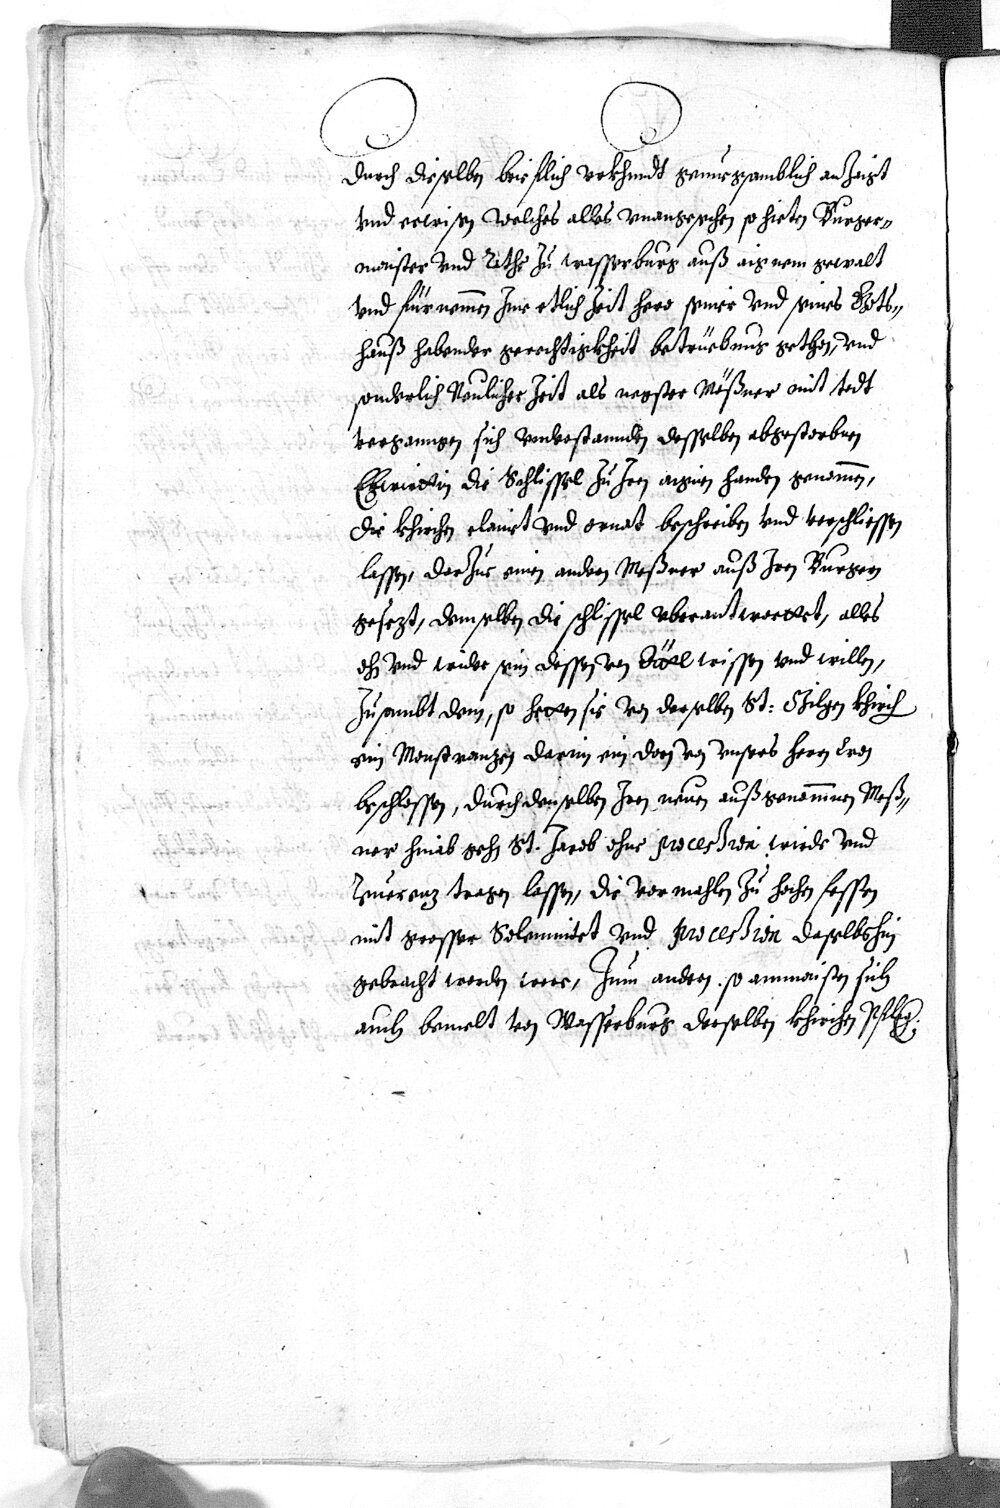 durch dieselben briefflich vrkhundt genuegsamblich anZaigt
vnd erwisen welches alles vnangesechen so hieten Burger„
maister vnd Räthe Zu wasserburg auß aignem gewalt
vnd fürnemen Jme etlich Zeit hero seiner vnd seines Gots„
hauß habender gerechtigkheit betrüebnus gethon, vnd
sonderlich Neulicher Zeit als negster Mößner mit todt
vergangen sich vnderstannden desselben abgestorbnen
Eewirttin die Schlissel Zu Jren aignen handen genomen,
die khirchen clainet vnd ornat beschreiben vnd verschliessen
lassen, darZue einen andern Meßner auß Jren Burgern
gesezt, demselben die schlissel vberantworttet, alles
ohn vnd wider sein dessen von Attl wissen vnd willen,
Zusambt dem, so hetten sie von derselben St: Gilgen khirch
ein Monstranzen darin ein dorn von vnsers herrn Cron
beschlossen, durch denselben Jren neuen außgenommnen Meß„
ner hinab gehn St. Jacob ohne procession wirde vnd
Reuerenz tragen lassen, die vormahlen Zu hochen festen
mit grosser Solemnitet vnd procession daselbsthin
gebracht worden were, Zum andern so anmassten sich
auch bemelt von Wasserburg derselben khirchen Pfleg: